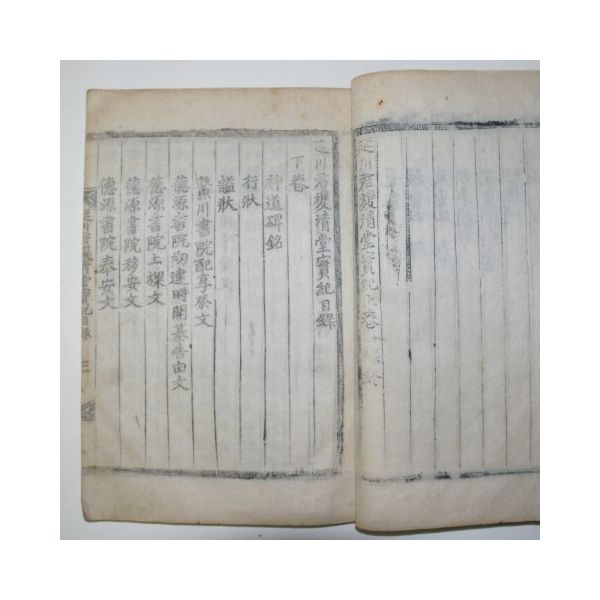 延川君雙清堂實紀上卷
延川君雙清堂實紀目錄
下卷
神道碑銘
行狀
諡狀
鰲川書院配享祭文
德源書院刱建時開基告由文
德源書院上樑文
德源書院移安文
德源書院奉安文
目錄
三